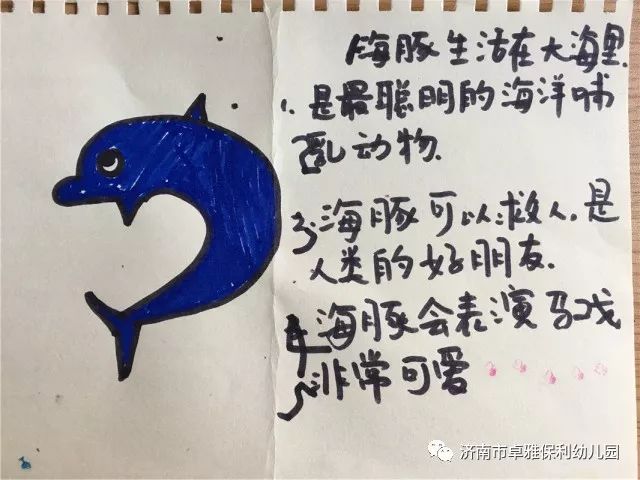 海豚生活在大海里.
1. 是最聪明的海洋哺
乳动物.
3. 海豚可以救人.是
人类的好朋友.
海豚会表演马戏
非常可爱
济南市卓雅保利幼儿园